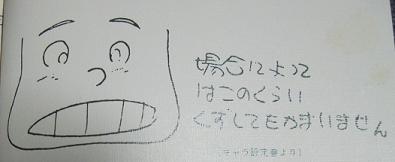 場合によって
はこのくらい
くずしてもかまいません
(キャラ設定書より)